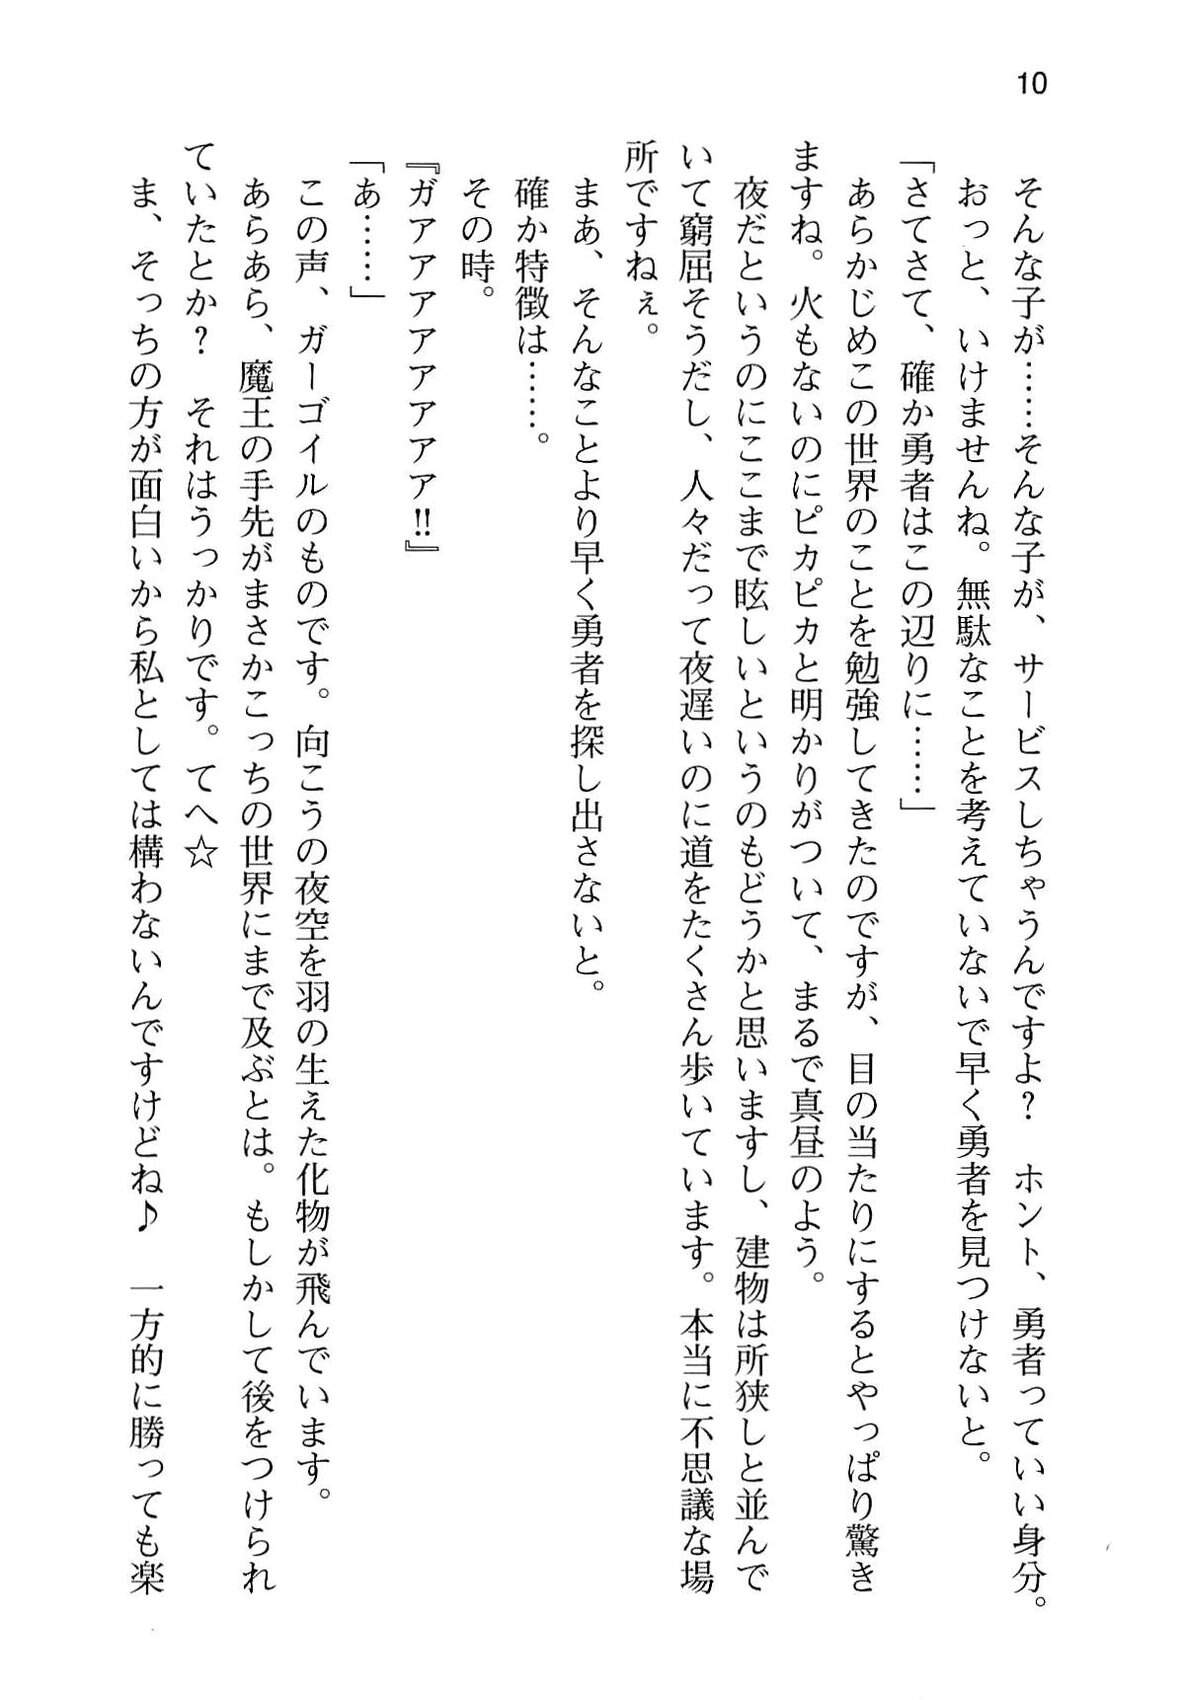 10
そんな子が……そんな子が、サービスしちゃうんですよ？　ホント、勇者っていい身分。
おっと、いけませんね。無駄なことを考えていないで早く勇者を見つけないと。
「さてさて、確か勇者はこの辺りに……」
あらかじめこの世界のことを勉強してきたのですが、目の当たりにするとやっぱり驚き
ますね。火もないのにピカピカと明かりがついて、まるで真昼のよう。
夜だというのにここまで眩しいというのもどうかと思いますし、建物は所狭しと並んで
いて窮屈そうだし、人々だって夜遅いのに道をたくさん歩いています。本当に不思議な場
所ですねぇ。
まあ、そんなことより早く勇者を探し出さないと。
確か特徴は……。
その時。
『ガアアアアアアアア!!』
「あ……」
この声、ガーゴイルのものです。向こうの夜空を羽の生えた化物が飛んでいます。
あらあら、魔王の手先がまさかこっちの世界にまで及ぶとは。もしかして後をつけられ
ていたとか？　それはうっかりです。てへ☆
ま、そっちの方が面白いから私としては構わないんですけどね♪　一方的に勝っても楽